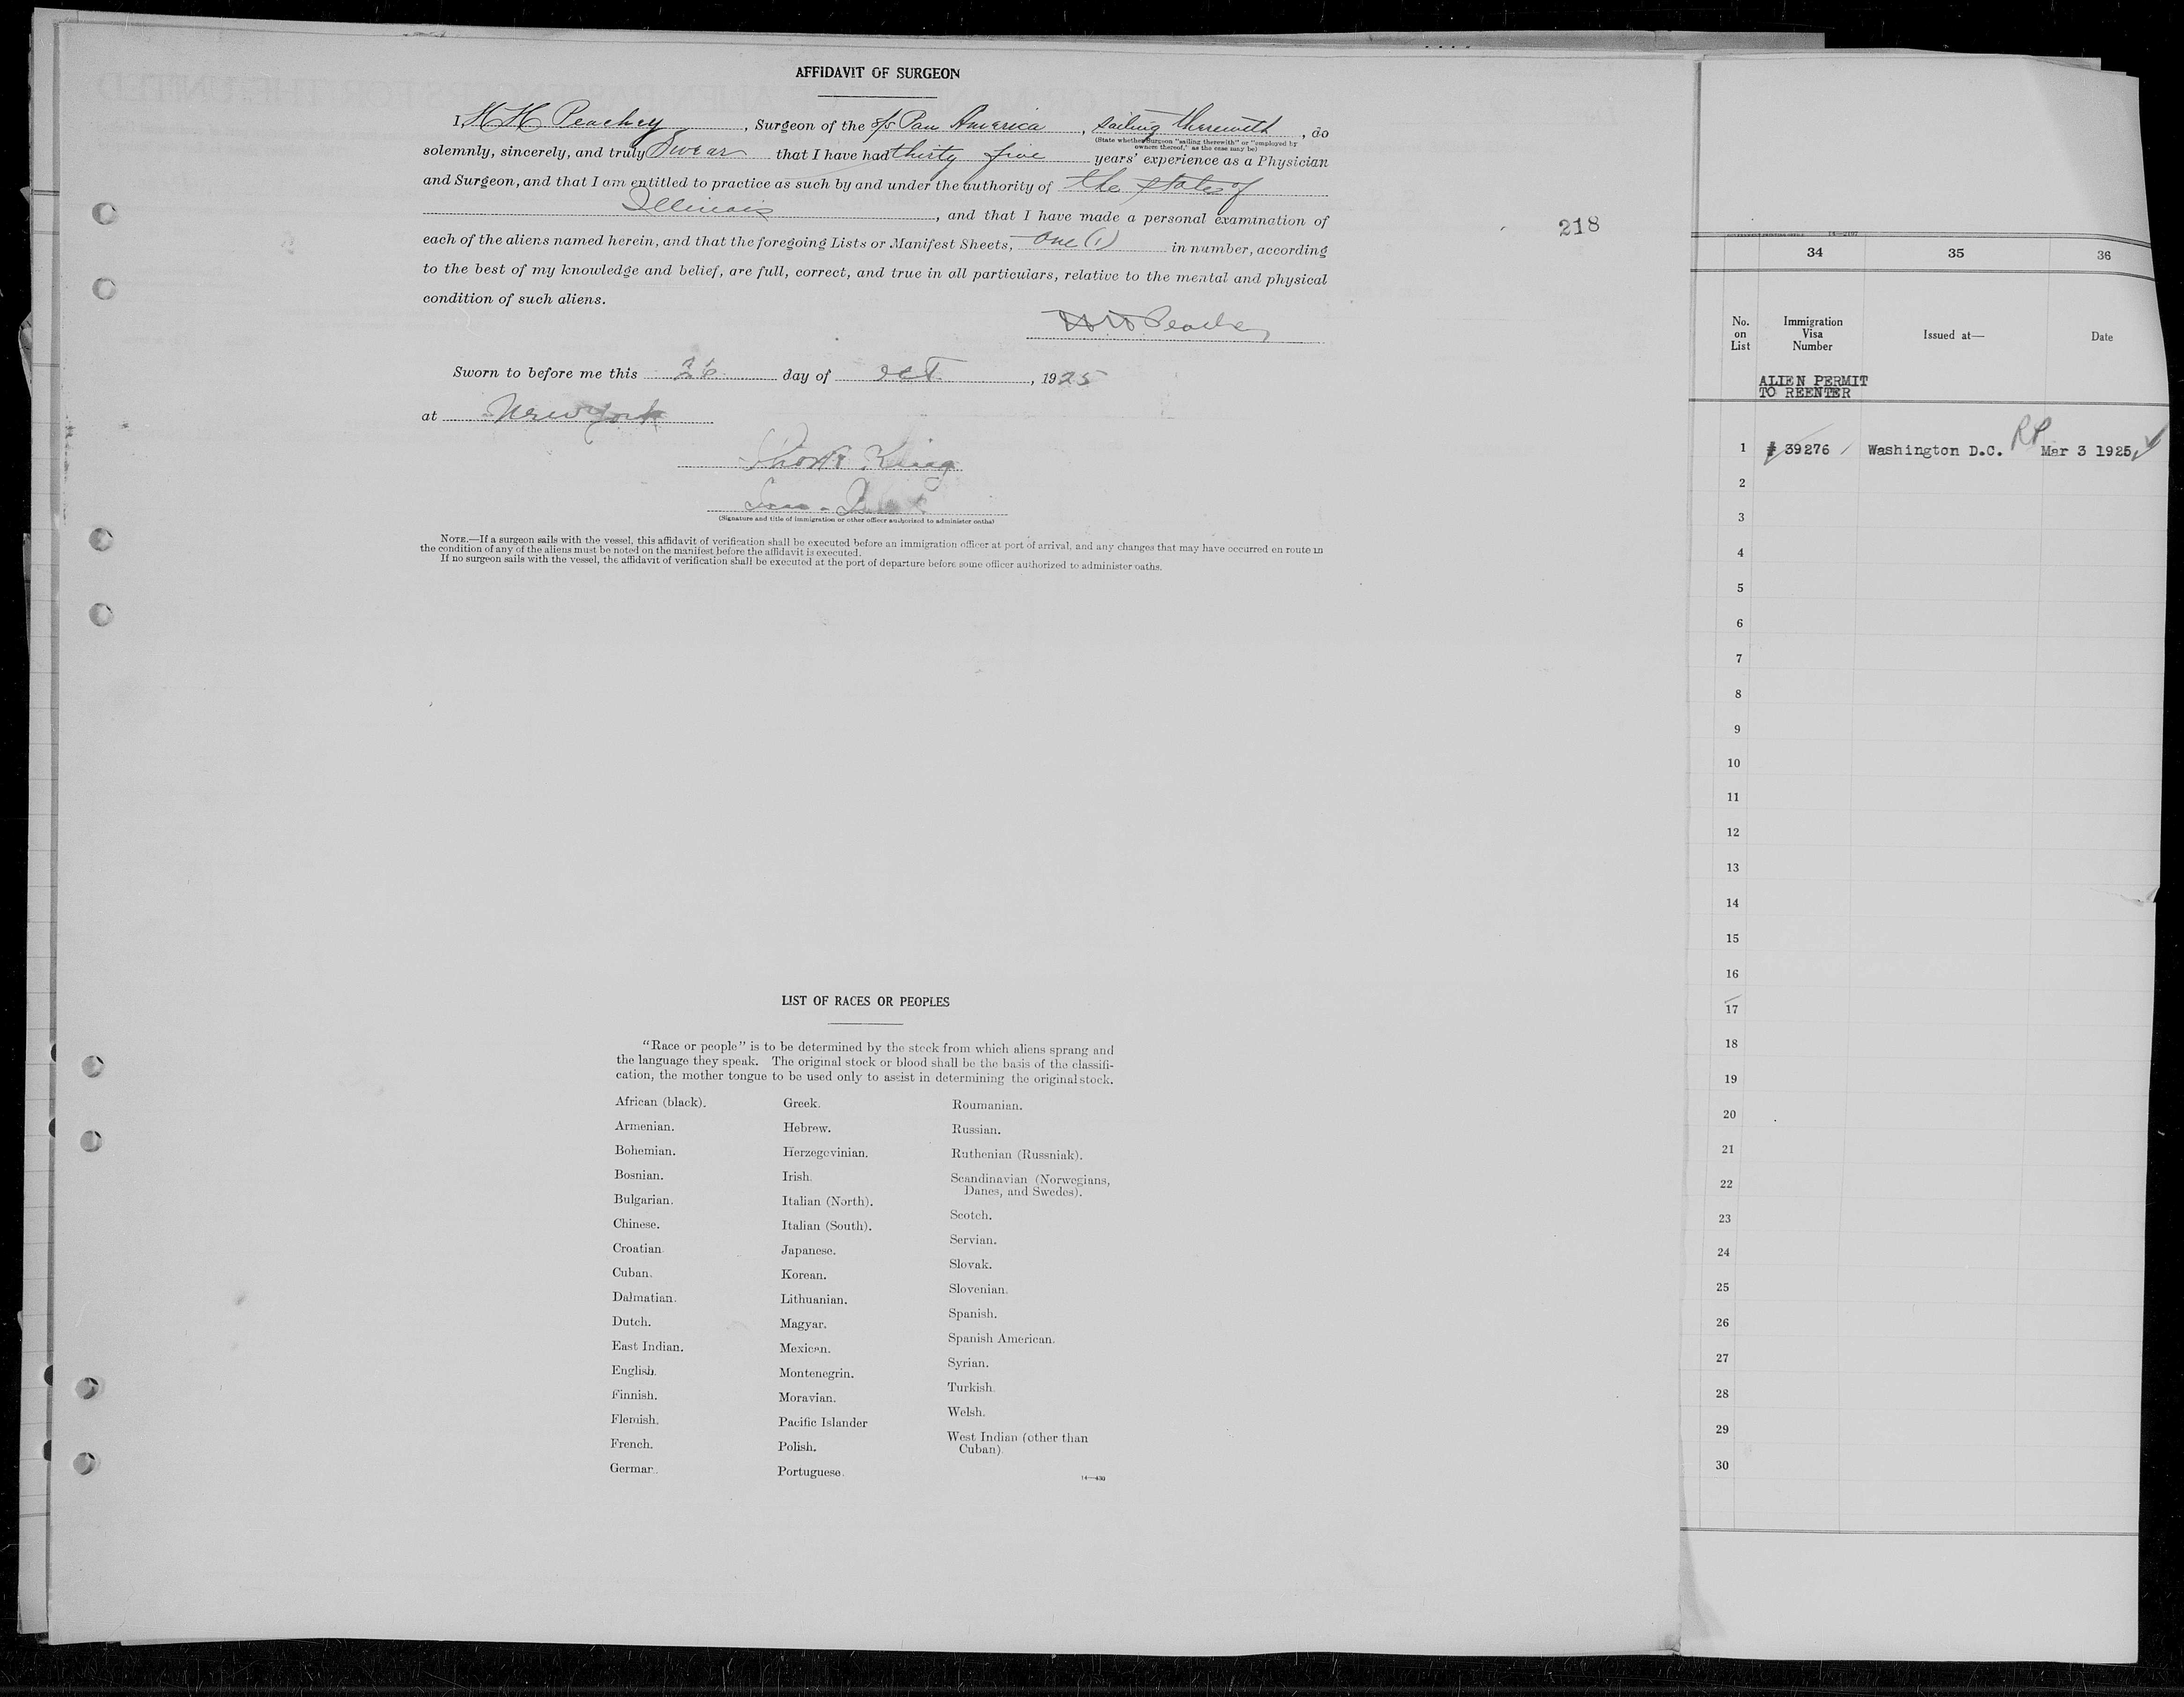 AFFIDAVIT OF SURGEON
I, H H Peachey, Surgeon of the S/S Pan America, sailing therewith, do
(State whether Surgeon "sailing therewith" or "employed by
owners thereof," as the case may be)
solemnly, sincerely, and truly Swear that I have had thirty five years' experience as a Physician
and Surgeon, and that I am entitled to practice as such by and under the authority of the state of
Illinois, and that I have made a personal examination of
each of the aliens named herein, and that the foregoing Lists or Manifest Sheets, one (1) in number, according
to the best of my knowledge and belief, are full, correct, and true in all particulars, relative to the mental and physical
condition of such aliens.
Peachey
Sworn to before me this 26 day of Oct, 1925
at New York
King
(Signature and title of immigration or other officer authorized to administer oaths)
NOTE.—If a surgeon sails with the vessel, this affidavit of verification shall be executed before an immigration officer at port of arrival, and any changes that may have occurred en route in
the condition of any of the aliens must be noted on the manifest before the affidavit is executed.
If no surgeon sails with the vessel, the affidavit of verification shall be executed at the port of departure before some officer authorized to administer oaths.
LIST OF RACES OR PEOPLES
"Race or people" is to be determined by the stock from which aliens sprang and
the language they speak. The original stock or blood shall be the basis of the classifi-
cation, the mother tongue to be used only to assist in determining the original stock.
African (black).
Armenian.
Bohemian.
Bosnian.
Bulgarian.
Chinese.
Croatian.
Cuban.
Dalmatian.
Dutch.
East Indian.
English.
Finnish.
Flemish.
French.
German.
Greek.
Hebrew.
Herzegovinian.
Irish.
Italian (North).
Italian (South).
Japanese.
Korean.
Lithuanian.
Magyar.
Mexican.
Montenegrin.
Moravian.
Pacific Islander
Polish.
Portuguese.
Roumanian.
Russian.
Ruthenian (Russniak).
Scandinavian (Norwegians,
Danes, and Swedes).
Scotch.
Servian.
Slovak.
Slovenian.
Spanish.
Spanish American.
Syrian.
Turkish.
Welsh.
West Indian (other than
Cuban).
14—430
218
34 35 36
No. on List
Immigration Visa Number
Issued at—
Date
ALIEN PERMIT
TO REENTER
RP
1 # 39276 Washington D.C. Mar 3 1925
2
3
4
5
6
7
8
9
10
11
12
13
14
15
16
17
18
19
20
21
22
23
24
25
26
27
28
29
30